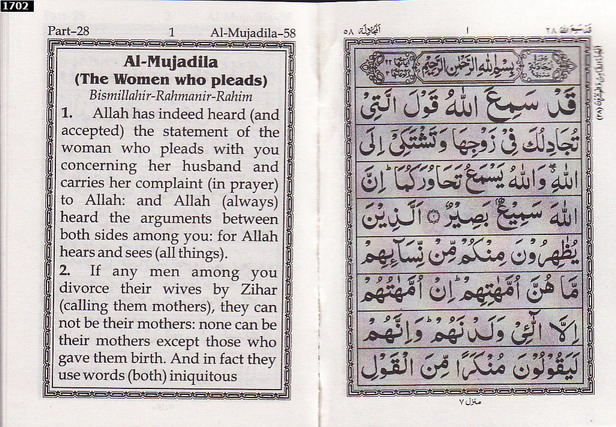 1702
Part–28 1 Al-Mujadila–58
Al-Mujadila
(The Women who pleads)
Bismillahir-Rahmanir-Rahim
1. Allah has indeed heard (and
accepted) the statement of the
woman who pleads with you
concerning her husband and
carries her complaint (in prayer)
to Allah: and Allah (always)
heard the arguments between
both sides among you: for Allah
hears and sees (all things).
2. If any men among you
divorce their wives by Zihar
(calling them mothers), they can
not be their mothers: none can be
their mothers except those who
gave them birth. And in fact they
use words (both) iniquitous
قد سمع الله ٢٨ ١ المجادلة ٥٨
بِسْمِ اللهِ الرَّحْمٰنِ الرَّحِيْمِ
قَدْ سَمِعَ اللهُ قَوْلَ الَّتِيْ
تُجَادِلُكَ فِيْ زَوْجِهَا وَتَشْتَكِيْۤ اِلَى
اللهِ ۖ وَاللهُ يَسْمَعُ تَحَاوُرَكُمَا ؕ اِنَّ
اللهَ سَمِيْعٌۢ بَصِيْرٌ ۝ اَلَّذِيْنَ
يُظٰهِرُوْنَ مِنْكُمْ مِّنْ نِّسَآىِٕهِمْ
مَّا هُنَّ اُمَّهٰتِهِمْ ؕ اِنْ اُمَّهٰتُهُمْ
اِلَّا الّٰٓـِٔيْ وَلَدْنَهُمْ ؕ وَاِنَّهُمْ
لَيَقُوْلُوْنَ مُنْكَرًا مِّنَ الْقَوْلِ
منزل ٧